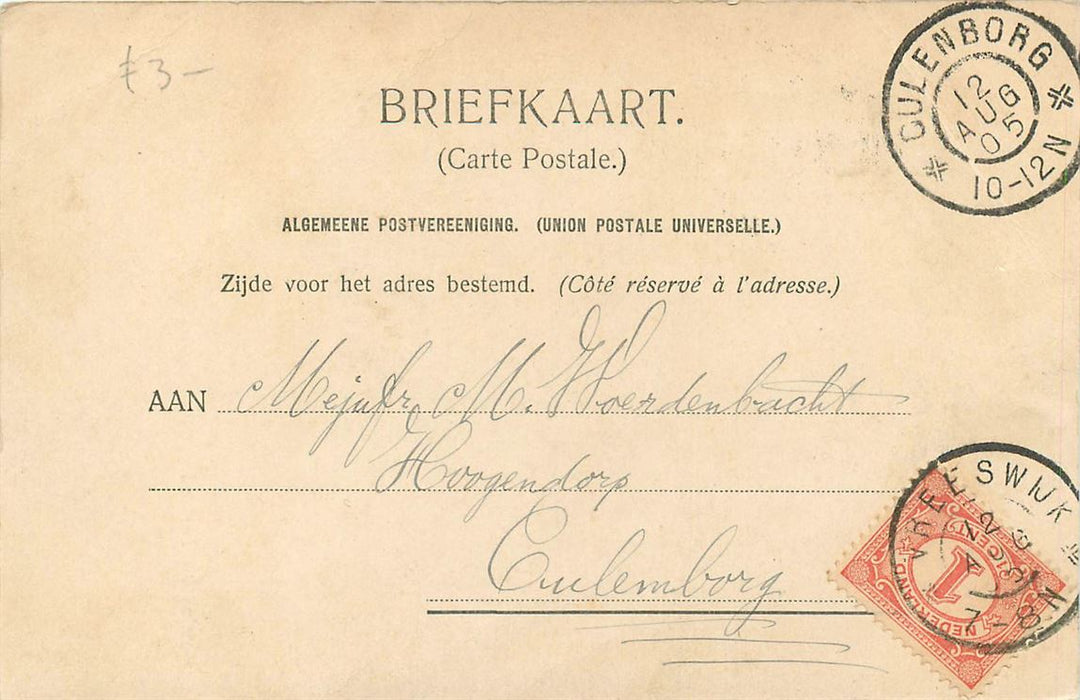 ƒ3-
CULENBORG
12
AUG
05
10-12N
BRIEFKAART.
(Carte Postale.)
ALGEMEENE POSTVEREENIGING. (UNION POSTALE UNIVERSELLE.)
Zijde voor het adres bestemd. (Côté réservé à l'adresse.)
AAN Mejufr. M. Woerdenbacht
Hoogendorp
Culemborg
VREESWIJK
12
AUG
7-8N
NEDERLAND
1
CENT